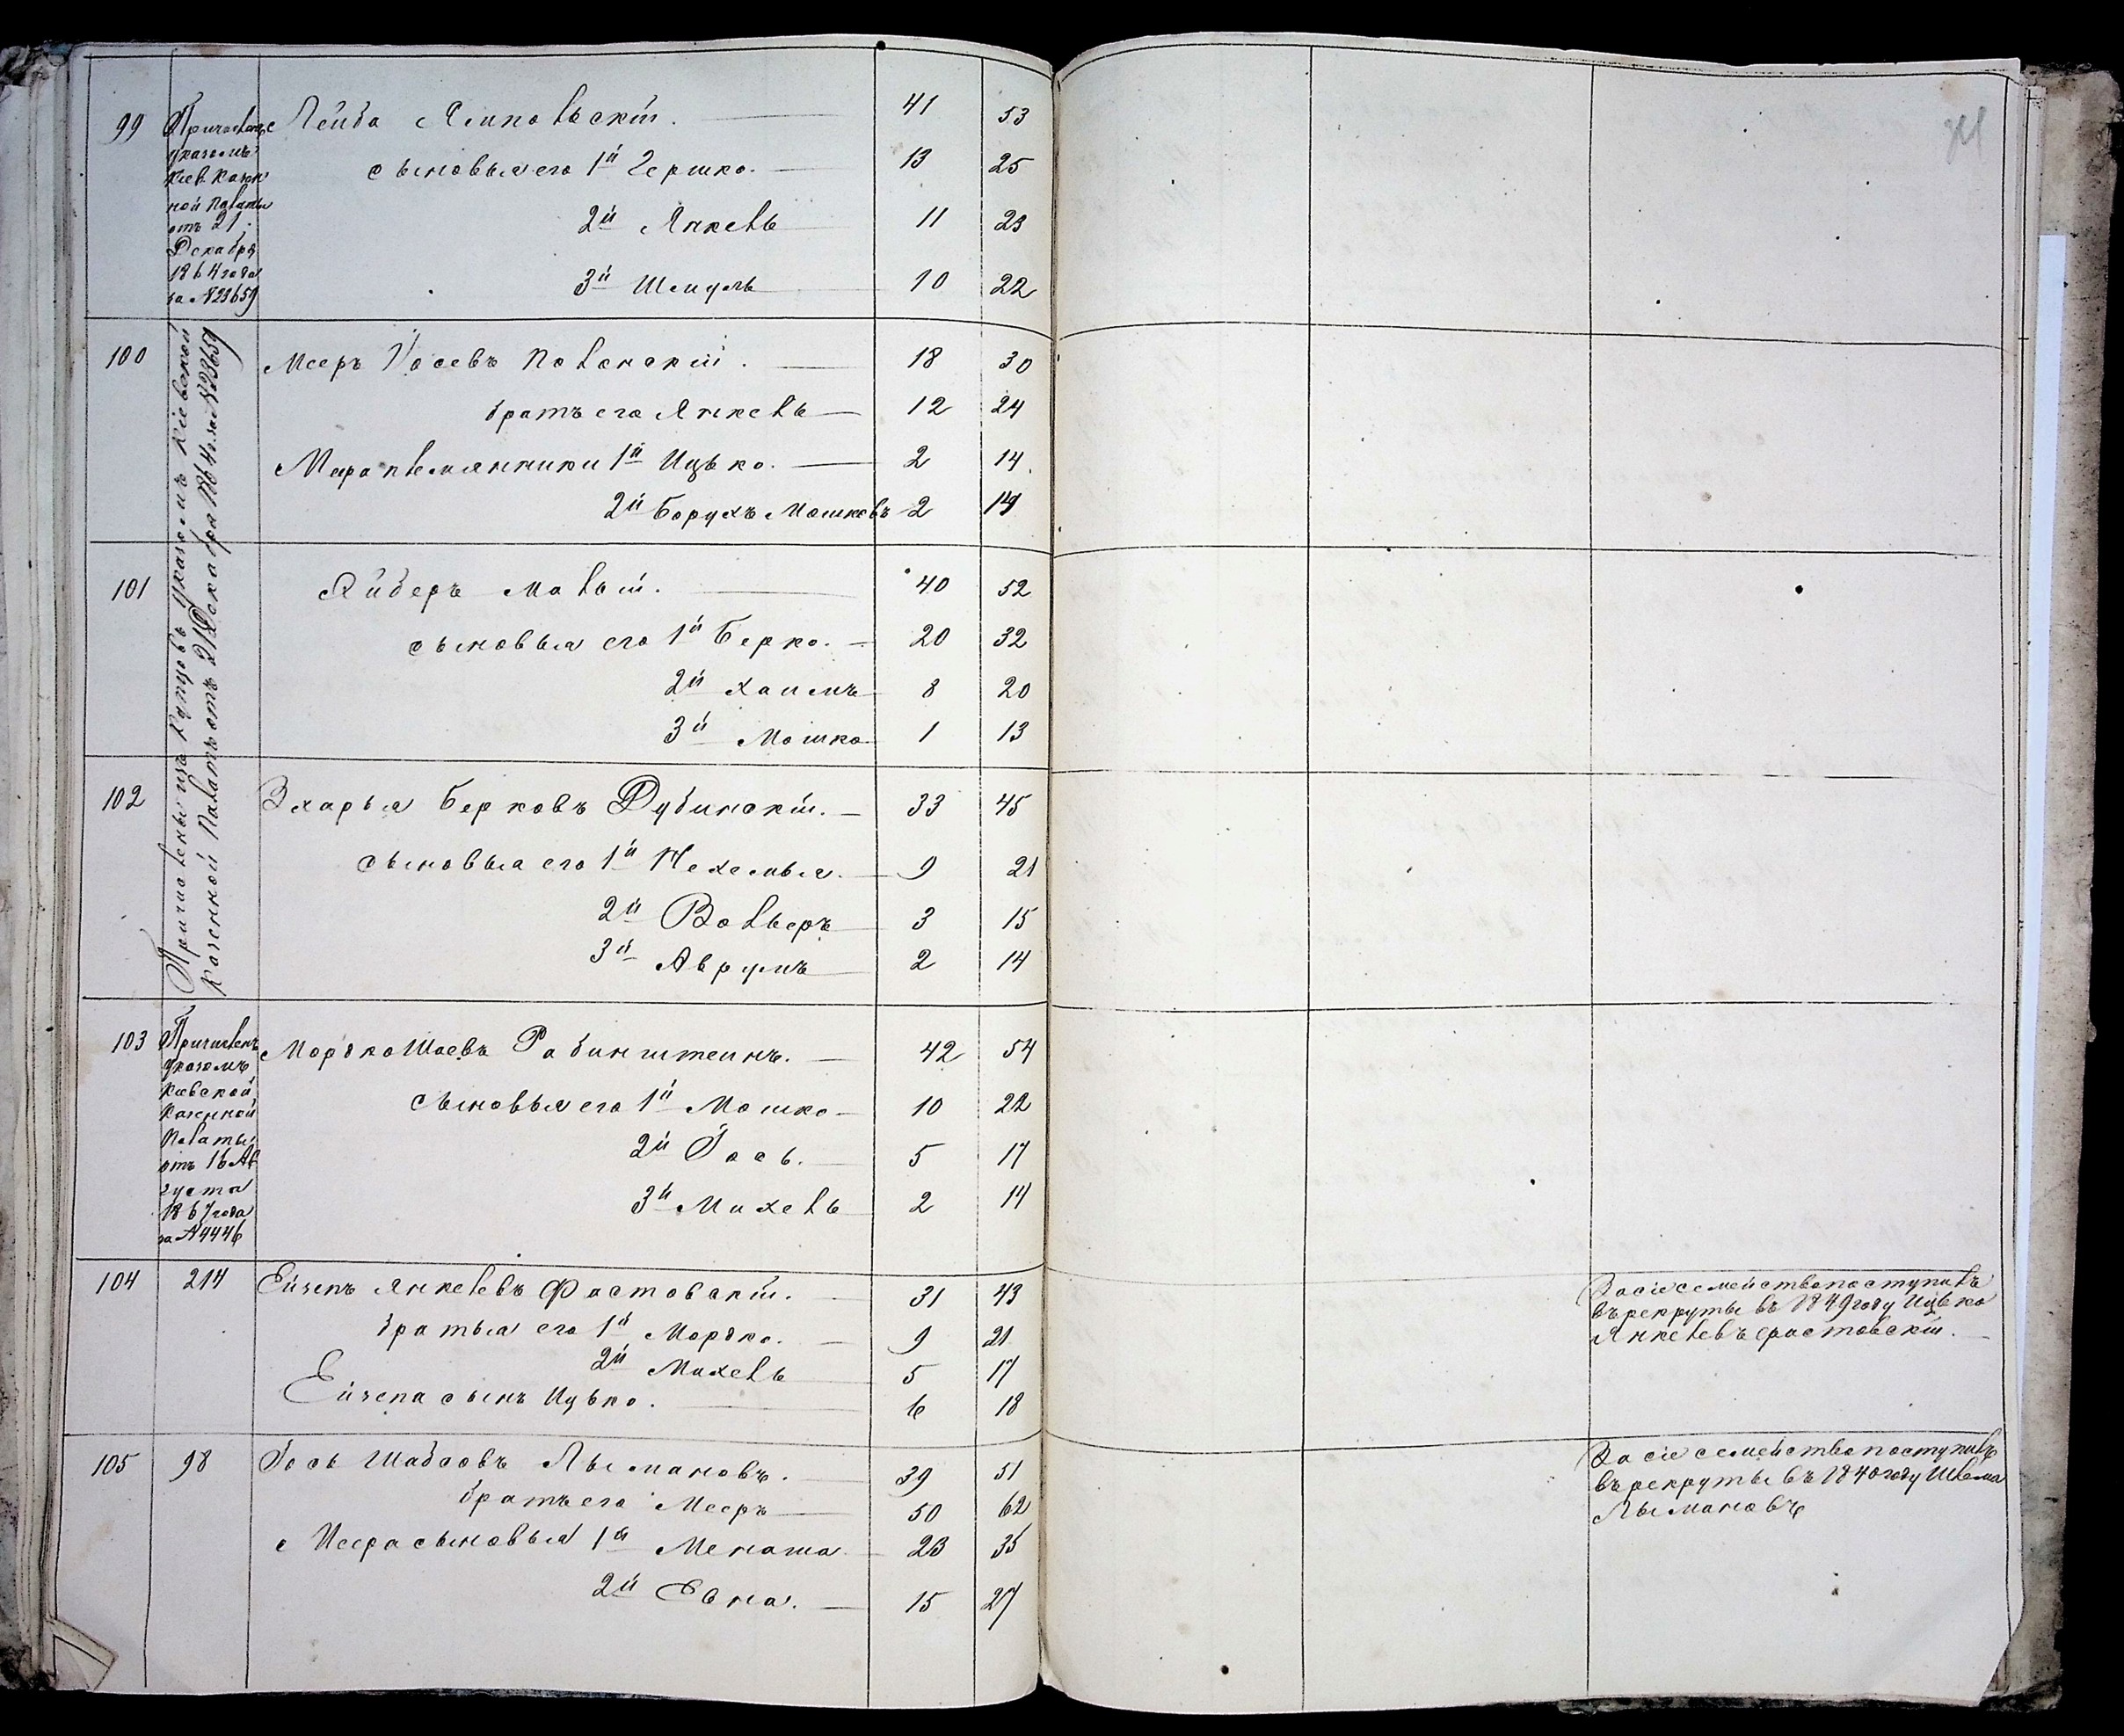 99 Причисленъ Лейба Липовьскій. 41 53
указомъ
Кіев. Казен
ной Палаты
отъ 21
Декабря
1864 года
за №23659
сыновья его 1й Гершко. 13 25
2й Янкель 11 23
3й Шмуль 10 22
100 Меер Іосевъ Поленскій. 18 30
братъ его Янкель 12 24
Меера племянники 1й Ицько. 2 14
2й Борухъ Мошковъ 2 14
Причислены изъ купцовъ указомъ Кіевской
Казенной Палаты отъ 21 Декабря 1864 г. за №23659
101 Лейберъ Малый. 40 52
сыновья его 1й Берко. 20 32
2й Хаимъ 8 20
3й Мошко 1 13
102 Зхарья Берковъ Дубинскій. 33 45
сыновья его 1й Нехемья. 9 21
2й Вольверъ 3 15
3й Аврумъ 2 14
103 Причисленъ Мордко Шаевъ Рабинштеинъ. 42 54
указомъ
Кіевской
Казенной
Палаты
отъ 16 Ав
густа
1867 года
за №4446
сыновья его 1й Мошко 10 22
2й Іось. 5 17
3й Михель 2 14
104 214 Ейзепъ Янкелевъ Фастовскій. 31 43
братья его 1й Мордко. 9 21
2й Михель 5 17
Ейзепа сынъ Ицько. 6 18
За сіе семейство поступилъ
въ рекруты въ 1849 году Ицько
Янкелевъ Фастовскій.
105 98 Іось Шабсовъ Лымановъ. 39 51
братъ его Мееръ 50 62
Меера сыновья 1й Менаша 23 35
2й Евна. 15 27
За сіе семейство поступилъ
въ рекруты въ 1840 году Шлема
Лымановъ